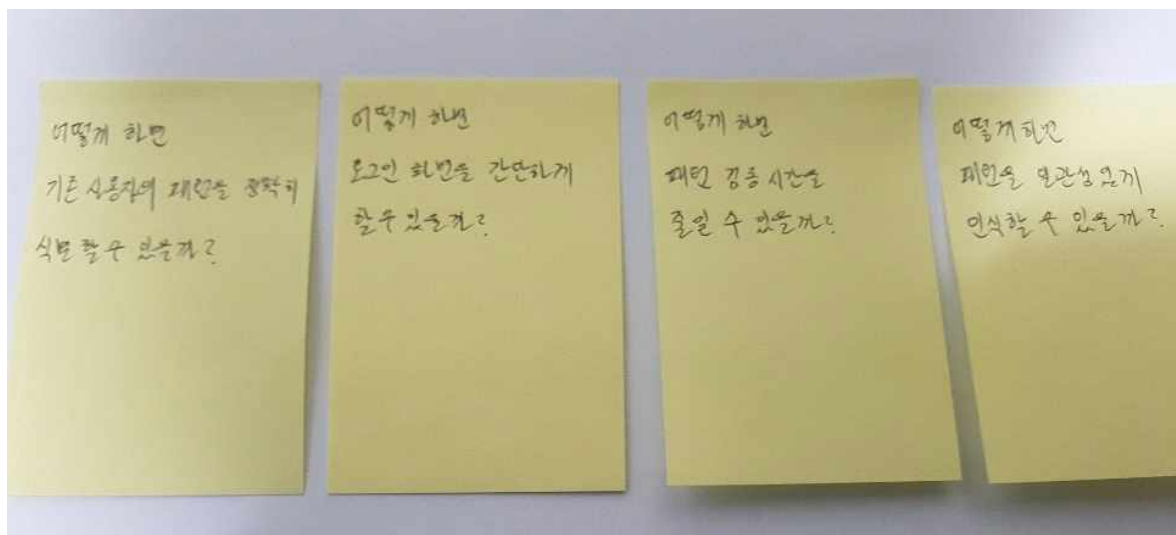 어떻게 하면
기존 사용자의 패턴을 정확히
식별 할 수 있을까?
어떻게 하면
로그인 화면을 간단하게
할 수 있을까?
어떻게 하면
패턴 검증 시간을
줄일 수 있을까?
어떻게 하면
패턴을 일관성 있게
인식할 수 있을까?